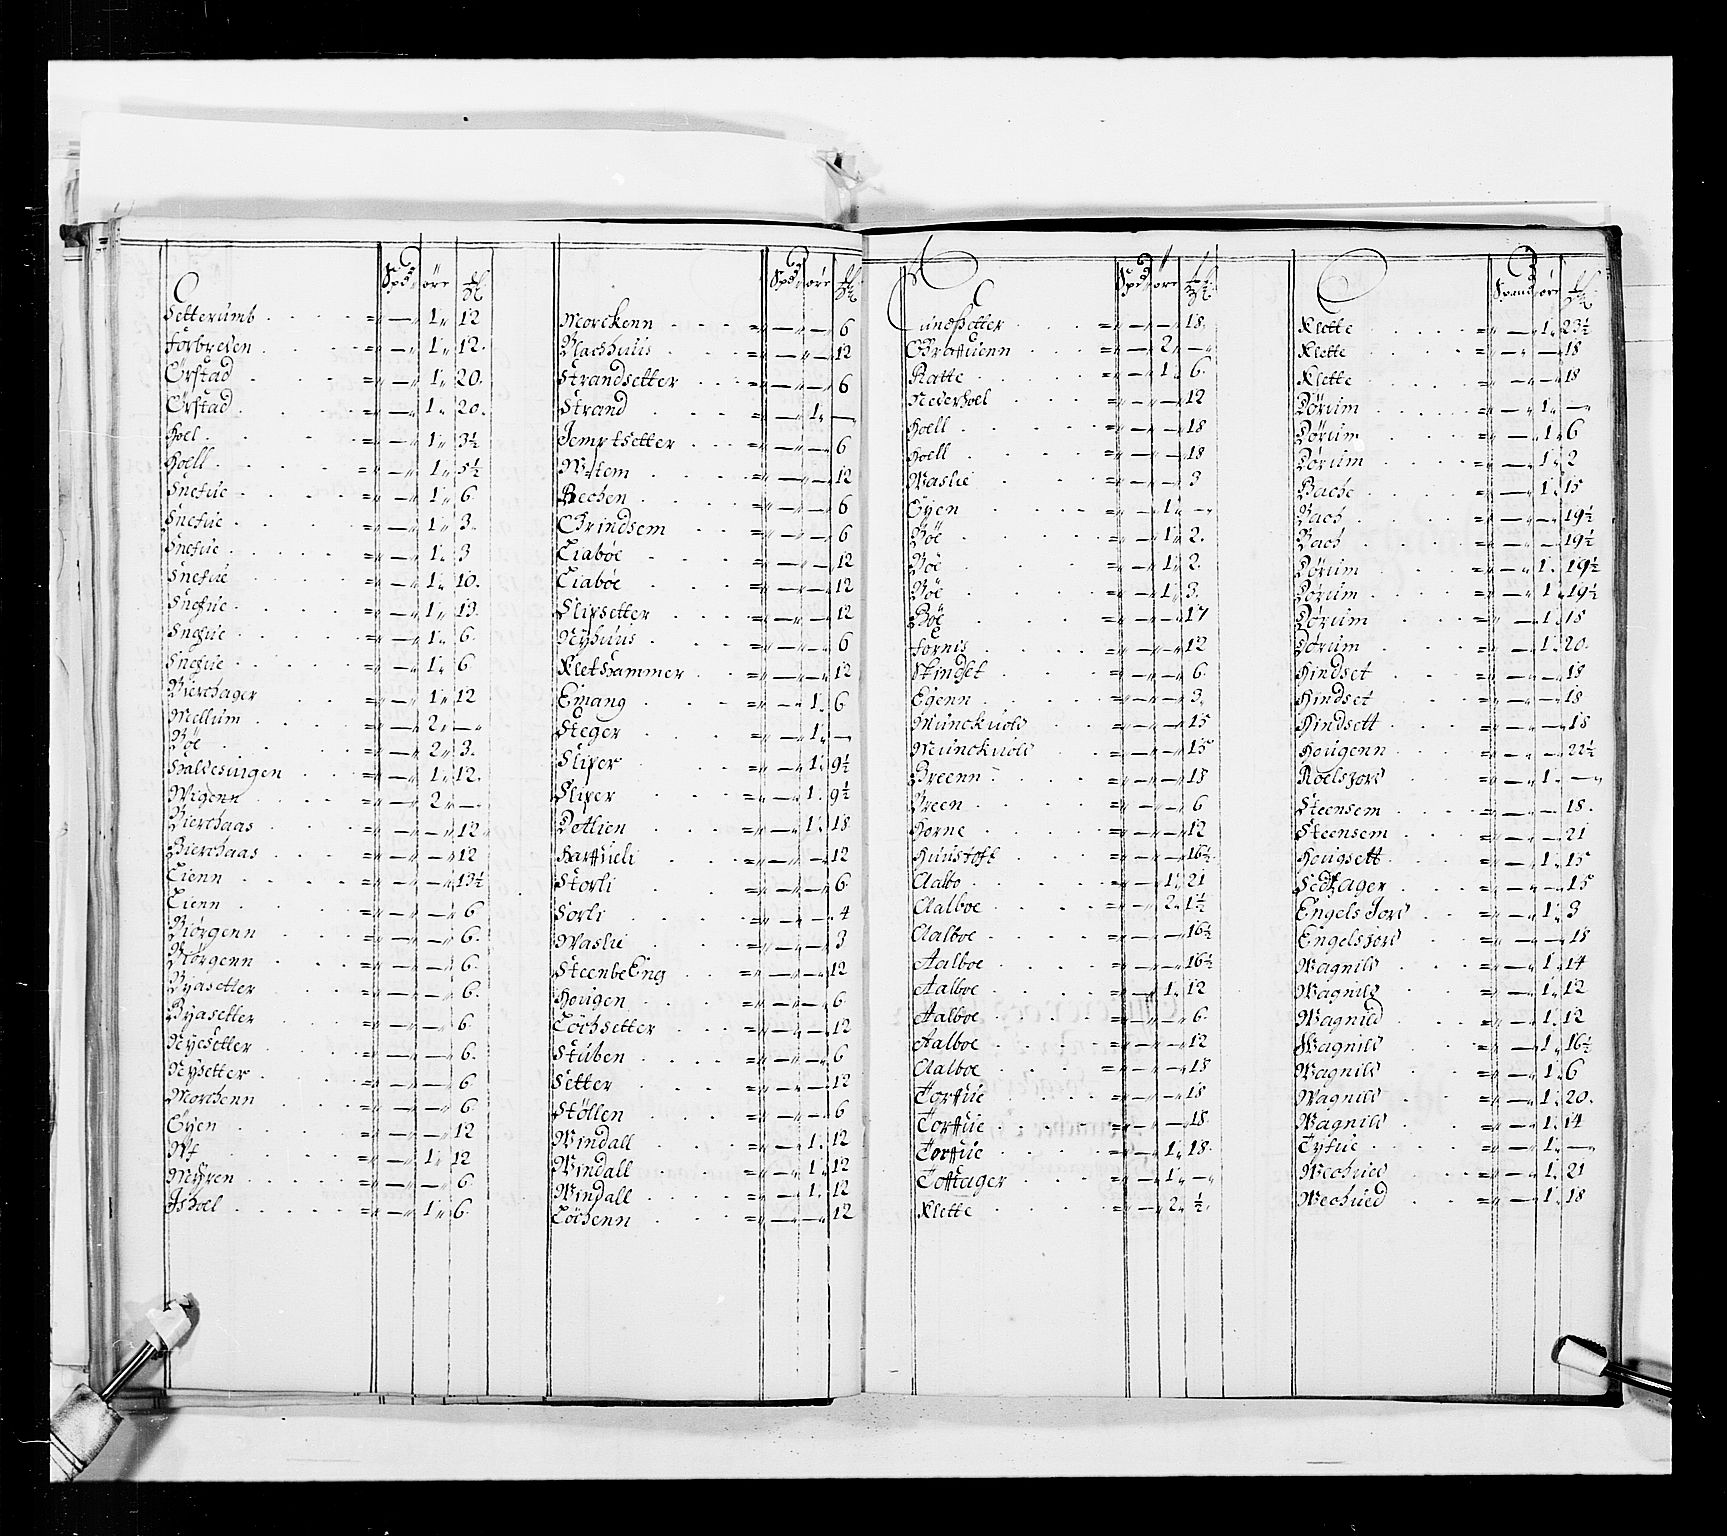 Spd øre
Setterumb =„ — 1„ 12
Forbreden =„ — 1„ 12.
Ørstad =„ — 1„ 20.
Ørstad =„ — 1„ 20.
Hoel =„ — 1„ 3½
Hoell =„ — 1„ 5½
Snefue =„ — 1„ 6
Snefue =„ — 1„ 3.
Snefue =„ — 1„ 3
Snefue =„ — 1„ 10.
Snefue =„ — 1„ 13.
Snefue =„ — 1„ 6.
Snefue =„ — 1„ 6
Bierchager =„ — 1„ 12
Mellum =„ — 2„ —„
Böe =„ — 2„ 3.
Haldesvigen =„ — 1„ 12.
Wigenn =„ — 2„ —„
Bierchaas =„ —„ —„ 12
Bierchaas =„ —„ —„ 12
Lienn =„ —„ —„ 13½
Lienn =„ —„ —„ 6
Biørgenn =„ —„ —„ 6.
Biørgenn =„ —„ —„ 6.
Byasetter =„ —„ —„ 6.
Byasetter =„ —„ —„ 6.
Nyesetter =„ —„ — 6.
Nysetter =„ —„ — 6
Morchenn =„ —„ — 6
Öyen =„ —„ — 12
Mÿren =„ —„ — 6
Ishoel =„ — 1„ 6
Spd øre
Morckenn =„ —„ —„ 6
Blaeshuus =„ —„ —„ 12
Strandsetter =„ —„ —„ 6
Strand =„ —„ 1„ —
Jemptsetter =„ —„ —„ 6
Wstem =„ —„ —„ 12
Bechen =„ —„ —„ 6
Grindsem =„ —„ —„ 6
Liabøe =„ —„ —„ 12
Liabøe =„ —„ —„ 12
Slipsetter =„ —„ —„ 12
Nÿhuus =„ —„ —„ 6
Kletshammer =„ —„ —„ 12
Emang =„ —„ 1„ 6
Steger =„ —„ 1„ —
Sliper =„ —„ 1„ 9½
Sliper =„ —„ 1„ 9½
Detlien =„ —„ 1„ 18
Harffueli =„ —„ —„ 12
Storli =„ —„ —„ 6
Sorli =„ —„ —„ 4
Waslie =„ —„ —„ 3
SteenbeEng =„ —„ —„ 12
Hougen =„ —„ —„ 6
Löchsetter =„ —„ —„ 12
Stuben =„ —„ —„ 6
Setter =„ —„ —„ 12
Stöllen =„ —„ —„ 6
Windall =„ —„ 1„ 12
Windall =„ —„ 1„ 12
Windall =„ —„ 1„ 12
Löchenn =„ —„ —„ 12
Spd øre
Lundsetter =„ —„ — 18.
Graffuenn =„ — 2„ —„
Ratte =„ — 1„ 6.
Nederhoel =„ —„ — 12
Hoell =„ —„ — 18
Hoell =„ —„ — 18
Waslie =„ —„ — 3
Öyen =„ — 1„ —„
Böe =„ — 1„ 2.
Böe =„ — 1„ 2.
Böe =„ — 1„ 3.
Böe =„ —„ — 17
Fornis =„ —„ — 12
Skindset =„ —„ — 6.
Egenn =„ —„ — 3.
Munckuold =„ —„ — 15
Munckuold =„ —„ — 15
Breenn =„ —„ — 18
Breen =„ —„ — 6
Horne =„ —„ — 12
Huustoft =„ —„ — 16½
Aalbo =„ — 1„ 21
Aalboe =„ — 2„ 1½
Aalboe =„ —„ — 16½
Aalboe =„ —„ — 16½
Aalboe =„ — 1„ 12
Aalboe =„ —„ — 6.
Aalboe =„ —„ — 12
Aalboe =„ —„ — 18
Torffue =„ —„ — 18
Torffue =„ —„ — 18.
Torffue =„ — 1„ 18.
Tofftager =„ — 1„ —„
Klette =„ — 2„ ½.
Spand øre
Klette =„ — 1„ 23½
Klette =„ —„ — 18
Klette =„ —„ — 18
Dörum =„ — 1„ —„
Dörum =„ — 1„ 6
Dörum =„ — 1„ 2
Bache =„ — 1„ 15
Bach =„ —„ — 19½
Bach =„ —„ — 19½
Dörum =„ — 1„ 19½
Dörum =„ — 1„ 19½
Dörum =„ — 1„ 18
Dörum =„ — 1„ 20.
Hindset =„ —„ — 18
Hindset =„ —„ — 18
Hindsett =„ —„ — 18
Hougenn =„ —„ — 22½
Roelsiord =„ — 1„ —„
Steensem =„ —„ — 18.
Steensem =„ —„ — 21
Hougsett =„ — 1„ 15
Sedtager =„ —„ — 15
Engelsiord =„ — 1„ 3
Engelsiord =„ —„ — 18
Wagnild =„ — 1„ 14
Wagnild =„ — 1„ 12
Wagnild =„ — 1„ 12
Wagnild =„ — 1„ 16½
Wagnild =„ — 1„ 6
Wagnild =„ — 1„ 20.
Wagnild =„ — 1„ 14
Tyfue =„ — 1„ —„
Wechued =„ — 1„ 21
Wechued =„ — 1„ 18